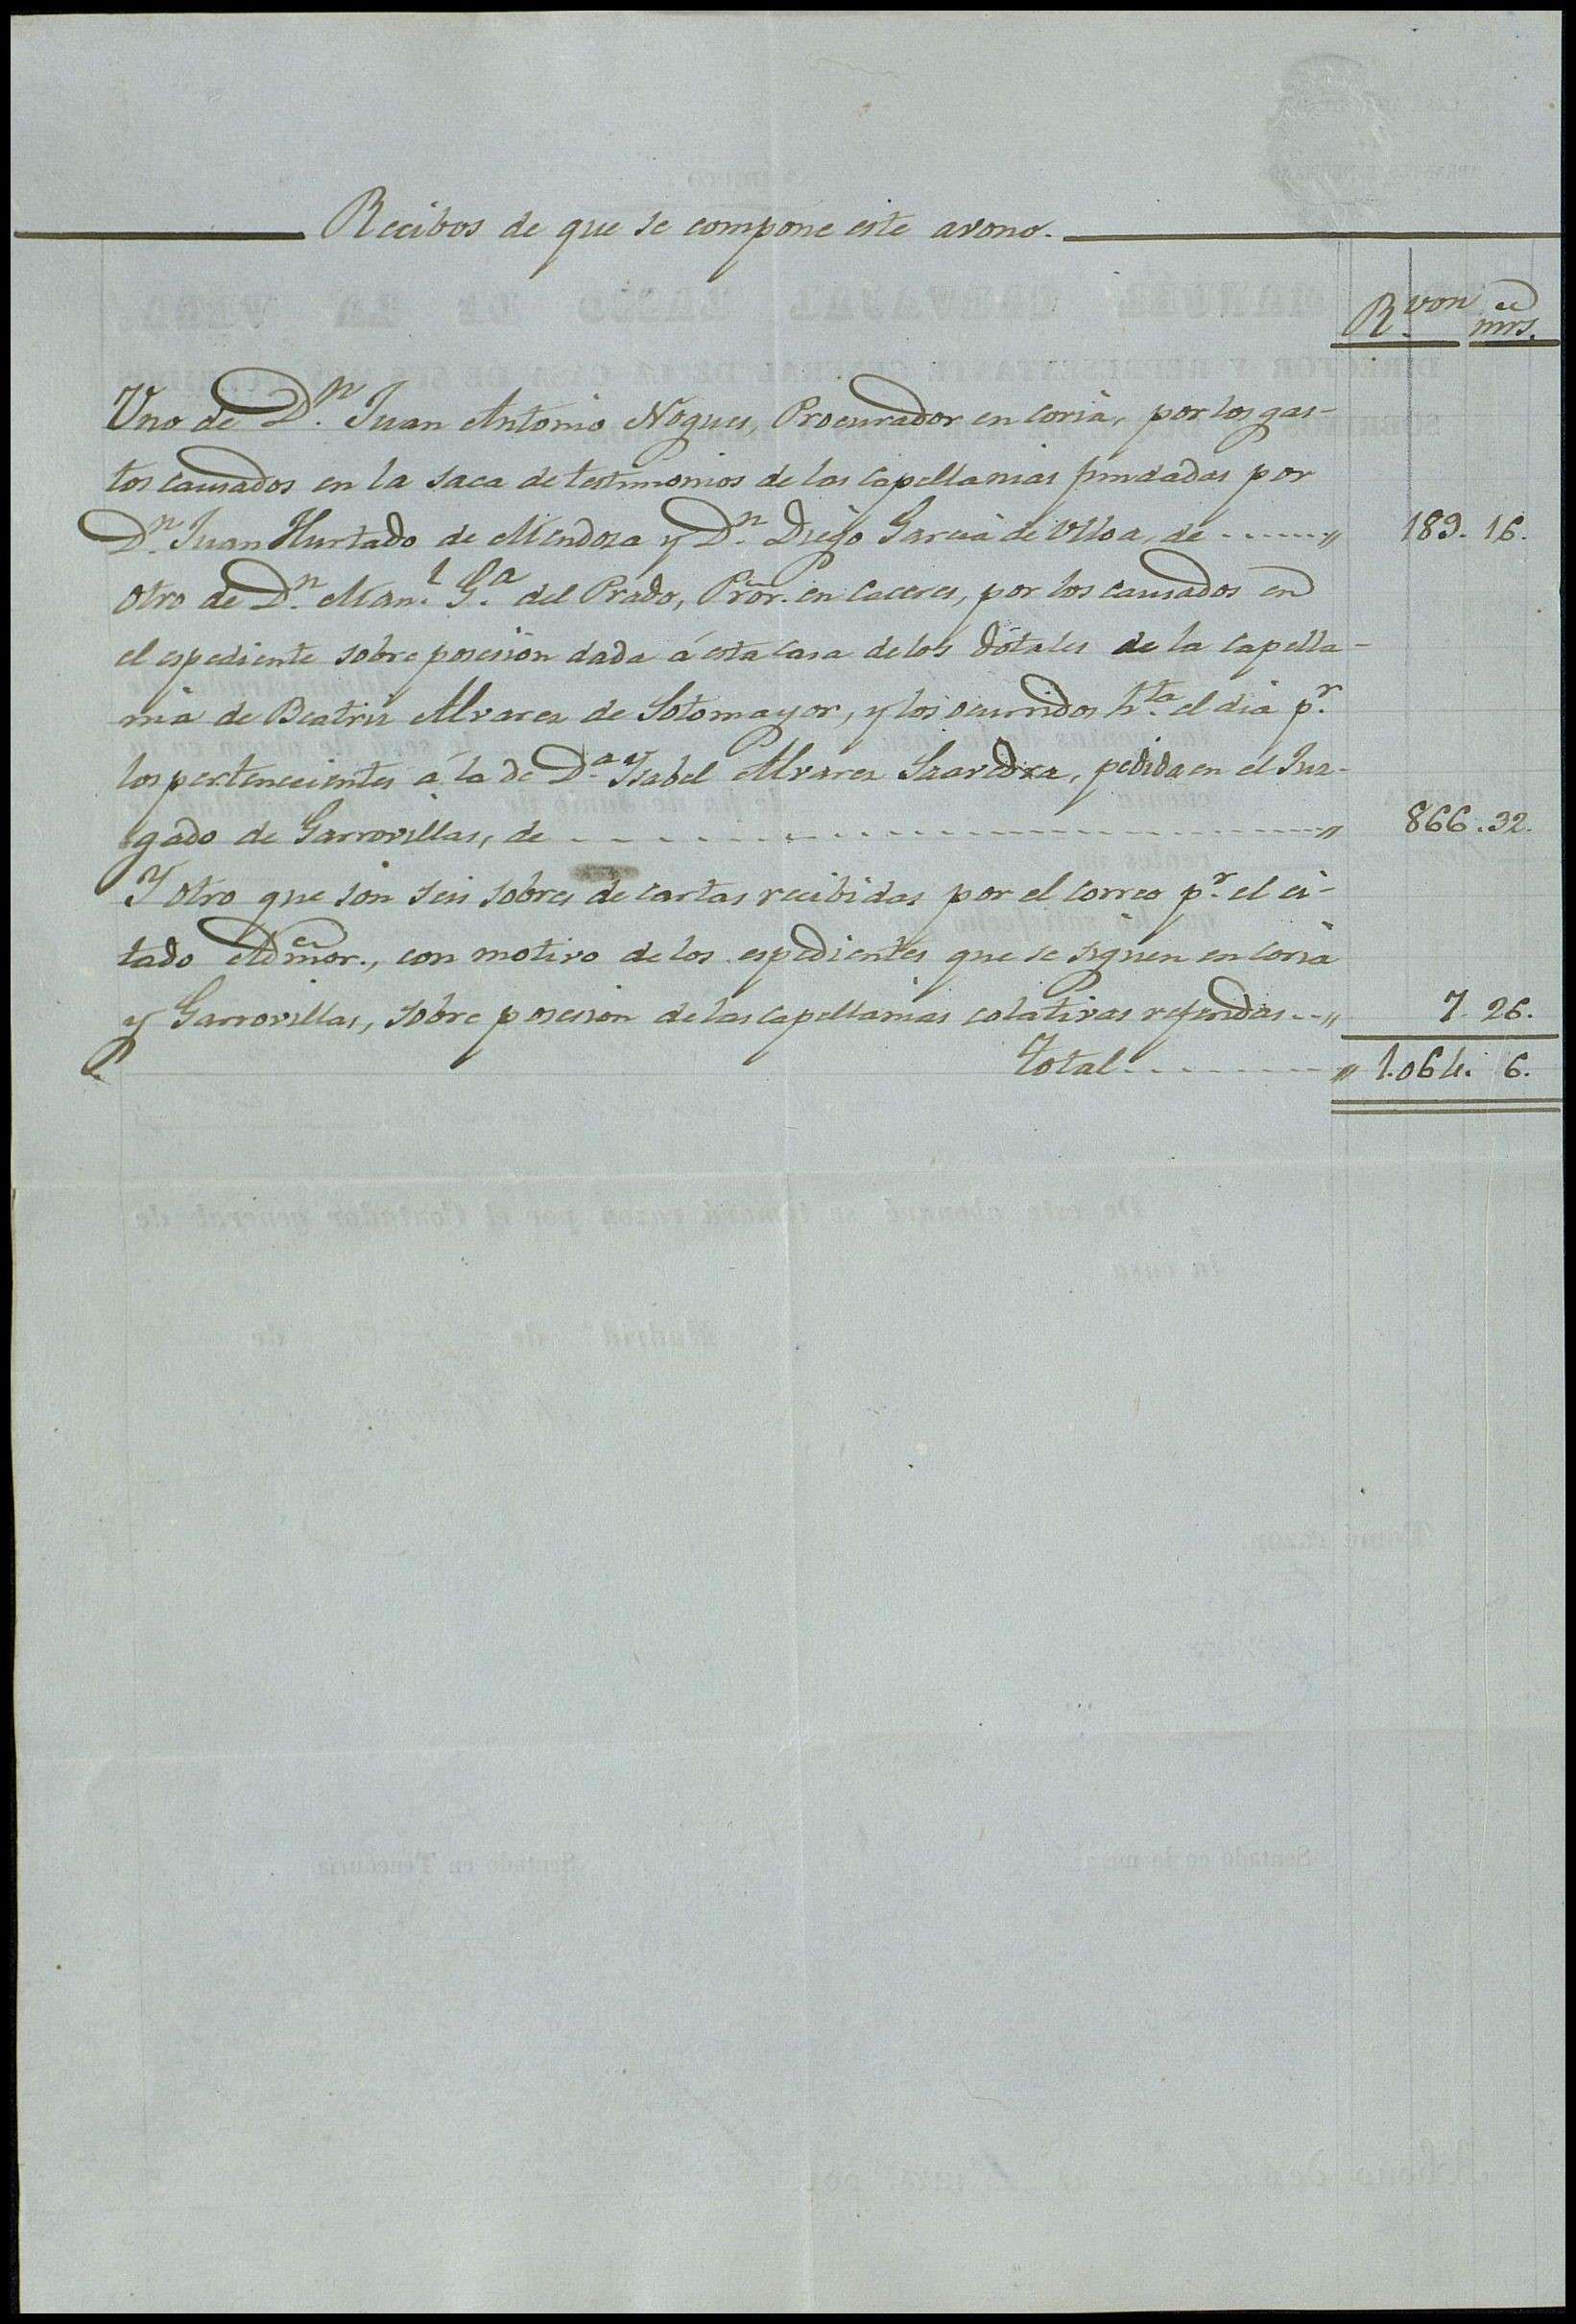 Recibos de que se compone este avono.
R. von mrs.
Uno de Dn. Juan Antonio Nogues, Procurador en Coria, por los gas-
tos causados en la saca de testimonios de las capellanias fundadas por
Dn. Juan Hurtado de Mendoza y Dn. Diego Garcia de Ulloa, de ------- " 189. 16.
Otro de Dn. Manl. Ga. del Prado, Pror. en Caceres, por los causados en
el espediente sobre posesion dada á esta casa de los dótales de la capella-
nia de Beatriz Alvarez de Sotomayor, y los ocurridos hta. el dia pr.
los pertenecientes á la de Da. Ysabel Alvarez Saavedra, pedida en el Juz-
gado de Garrovillas, de ------- " 866. 32.
Y otro que son seis sobres de cartas recibidas por el correo pr. el ci-
tado Admor., con motivo de los espedientes que se siguen en Coria
y Garrovillas, sobre posesion de las capellanias colativas referidas -- " 7. 26.
Total ------- " 1.064. 6.
De este abonaré se tomará razon por el Contador general de
la casa
Madrid de de
Tomé razon.
Sentado en Teneduría